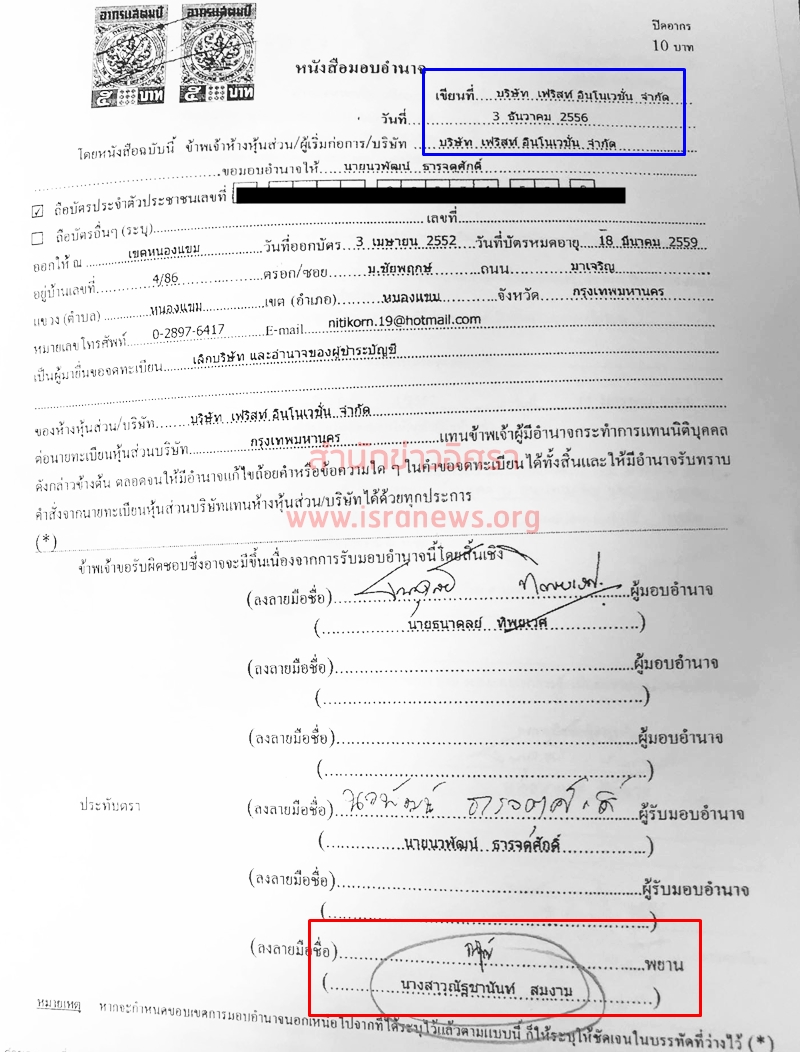 อากรแสตมป์ อากรแสตมป์
๕ บาท ๕ บาท
ปิดอากร
10 บาท
หนังสือมอบอำนาจ
เขียนที่ บริษัท เฟริสท์ อินโนเวชั่น จำกัด
วันที่ 3 ธันวาคม 2556
โดยหนังสือฉบับนี้ ข้าพเจ้าห้างหุ้นส่วน/ผู้เริ่มก่อการ/บริษัท บริษัท เฟริสท์ อินโนเวชั่น จำกัด
ขอมอบอำนาจให้ นายนวพัฒน์ ธารจดศักดิ์
☑ ถือบัตรประจำตัวประชาชนเลขที่
☐ ถือบัตรอื่นๆ (ระบุ) เลขที่
ออกให้ ณ เขตหนองแขม วันที่ออกบัตร 3 เมษายน 2552 วันที่บัตรหมดอายุ 18 มีนาคม 2559
อยู่บ้านเลขที่ 4/86 ตรอก/ซอย ม.ชัยพฤกษ์ ถนน มาเจริญ
แขวง (ตำบล) หนองแขม เขต (อำเภอ) หนองแขม จังหวัด กรุงเทพมหานคร
หมายเลขโทรศัพท์ 0-2897-6417 E-mail nitikorn.19@hotmail.com
เป็นผู้มายื่นขอจดทะเบียน เลิกบริษัท และอำนาจของผู้ชำระบัญชี
ของห้างหุ้นส่วน/บริษัท บริษัท เฟริสท์ อินโนเวชั่น จำกัด
ต่อนายทะเบียนหุ้นส่วนบริษัท กรุงเทพมหานคร แทนข้าพเจ้าผู้มีอำนาจกระทำการแทนนิติบุคคล
สำนักข่าวอิศรา
ดังกล่าวข้างต้น ตลอดจนให้มีอำนาจแก้ไขถ้อยคำหรือข้อความใด ๆ ในคำขอจดทะเบียนได้ทั้งสิ้นและให้มีอำนาจรับทราบ
คำสั่งจากนายทะเบียนหุ้นส่วนบริษัทแทนห้างหุ้นส่วน/บริษัทได้ด้วยทุกประการ
www.isranews.org
(*)
ข้าพเจ้าขอรับผิดชอบซึ่งอาจจะมีขึ้นเนื่องจากการรับมอบอำนาจนี้โดยสิ้นเชิง
(ลงลายมือชื่อ) ผู้มอบอำนาจ
(นายธนาดุลย์ ทิพยเวศ)
(ลงลายมือชื่อ) ผู้มอบอำนาจ
( )
(ลงลายมือชื่อ) ผู้มอบอำนาจ
( )
ประทับตรา (ลงลายมือชื่อ) นวพัฒน์ ธารจดศักดิ์ ผู้รับมอบอำนาจ
(นายนวพัฒน์ ธารจดศักดิ์)
(ลงลายมือชื่อ) ผู้รับมอบอำนาจ
( )
(ลงลายมือชื่อ) พยาน
(นางสาวณัฐชานันท์ สมงาม)
หมายเหตุ หากจะกำหนดขอบเขตการมอบอำนาจนอกเหนือไปจากที่ได้ระบุไว้แล้วตามแบบนี้ ก็ให้ระบุให้ชัดเจนในบรรทัดที่ว่างไว้ (*)